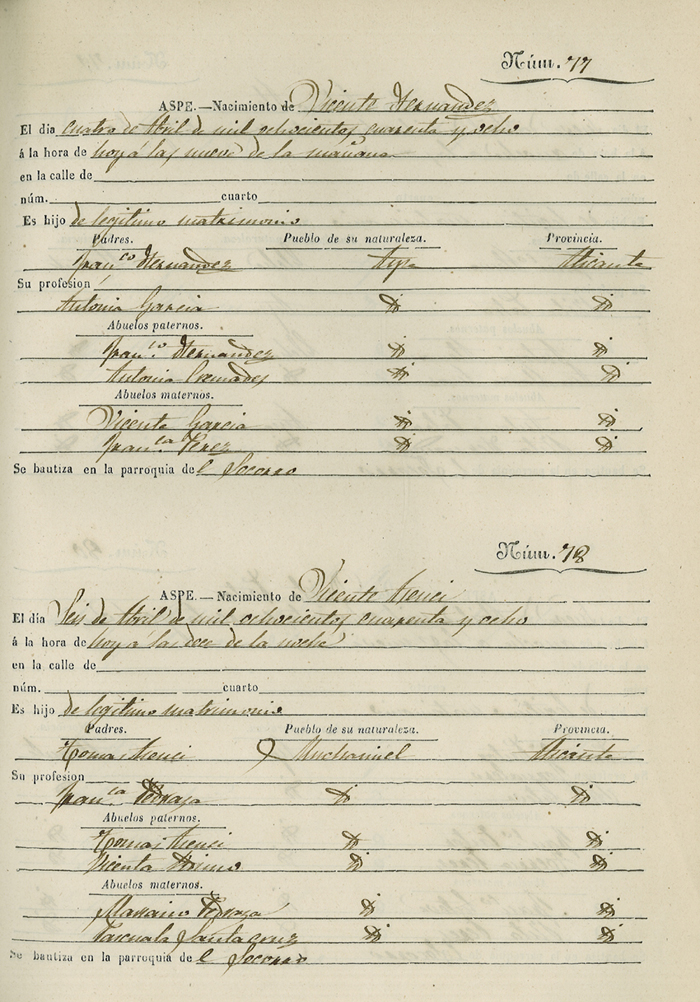 Núm. 77
ASPE.—Nacimiento de Vicente Hernandez
El dia cuatro de Abril de mil ochocientos cuarenta y ocho
á la hora de hoy á las nueve de la mañana
en la calle de
núm. cuarto
Es hijo de legitimo matrimonio
Padres. Pueblo de su naturaleza. Provincia.
Fran.co Hernandez Aspe Alicante
Su profesion
Antonia Garcia Yd Yd
Abuelos paternos.
Fran.co Hernandez Yd Yd
Antonia Cremades Yd Yd
Abuelos maternos.
Vicente Garcia Yd Yd
Fran.ca Perez Yd Yd
Se bautiza en la parroquia del Socorro
Núm. 78
ASPE.—Nacimiento de Vicente Asenci
El dia Seis de Abril de mil ochocientos cuarenta y ocho
á la hora de hoy á las doce de la noche
en la calle de
núm. cuarto
Es hijo de legitimo matrimonio
Padres. Pueblo de su naturaleza. Provincia.
Tomas Asenci Muchamiel Alicante
Su profesion
Fran.ca Pedraza Yd Yd
Abuelos paternos.
Tomas Asenci Yd Yd
Vicenta Yd Yd
Abuelos maternos.
Mariano Pedraza Yd Yd
Pascuala Santacruz Yd Yd
Se bautiza en la parroquia del Socorro